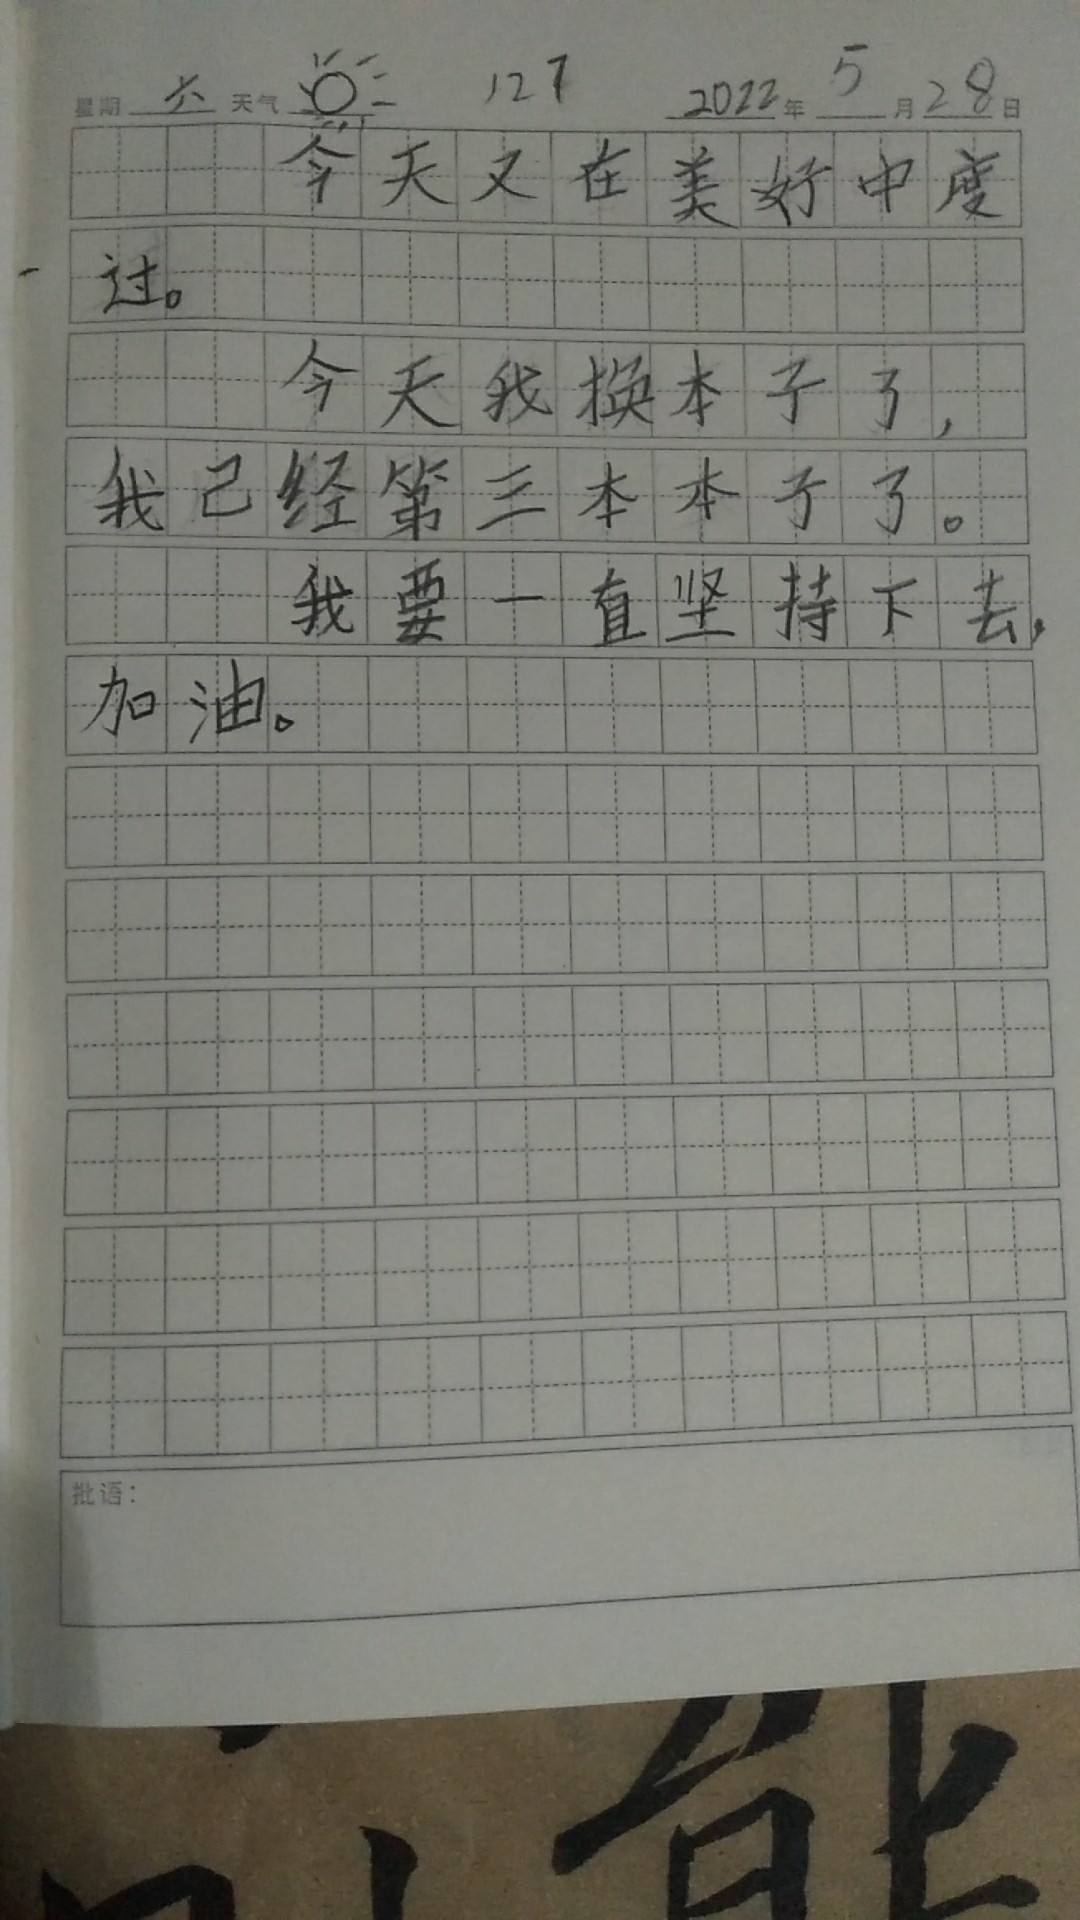 星期 六 天气 127 2022年 5月28日
今天又在美好中度
过。
今天我换本子了,
我己经第三本本子了。
我要一直坚持下去,
加油。
批语:
能